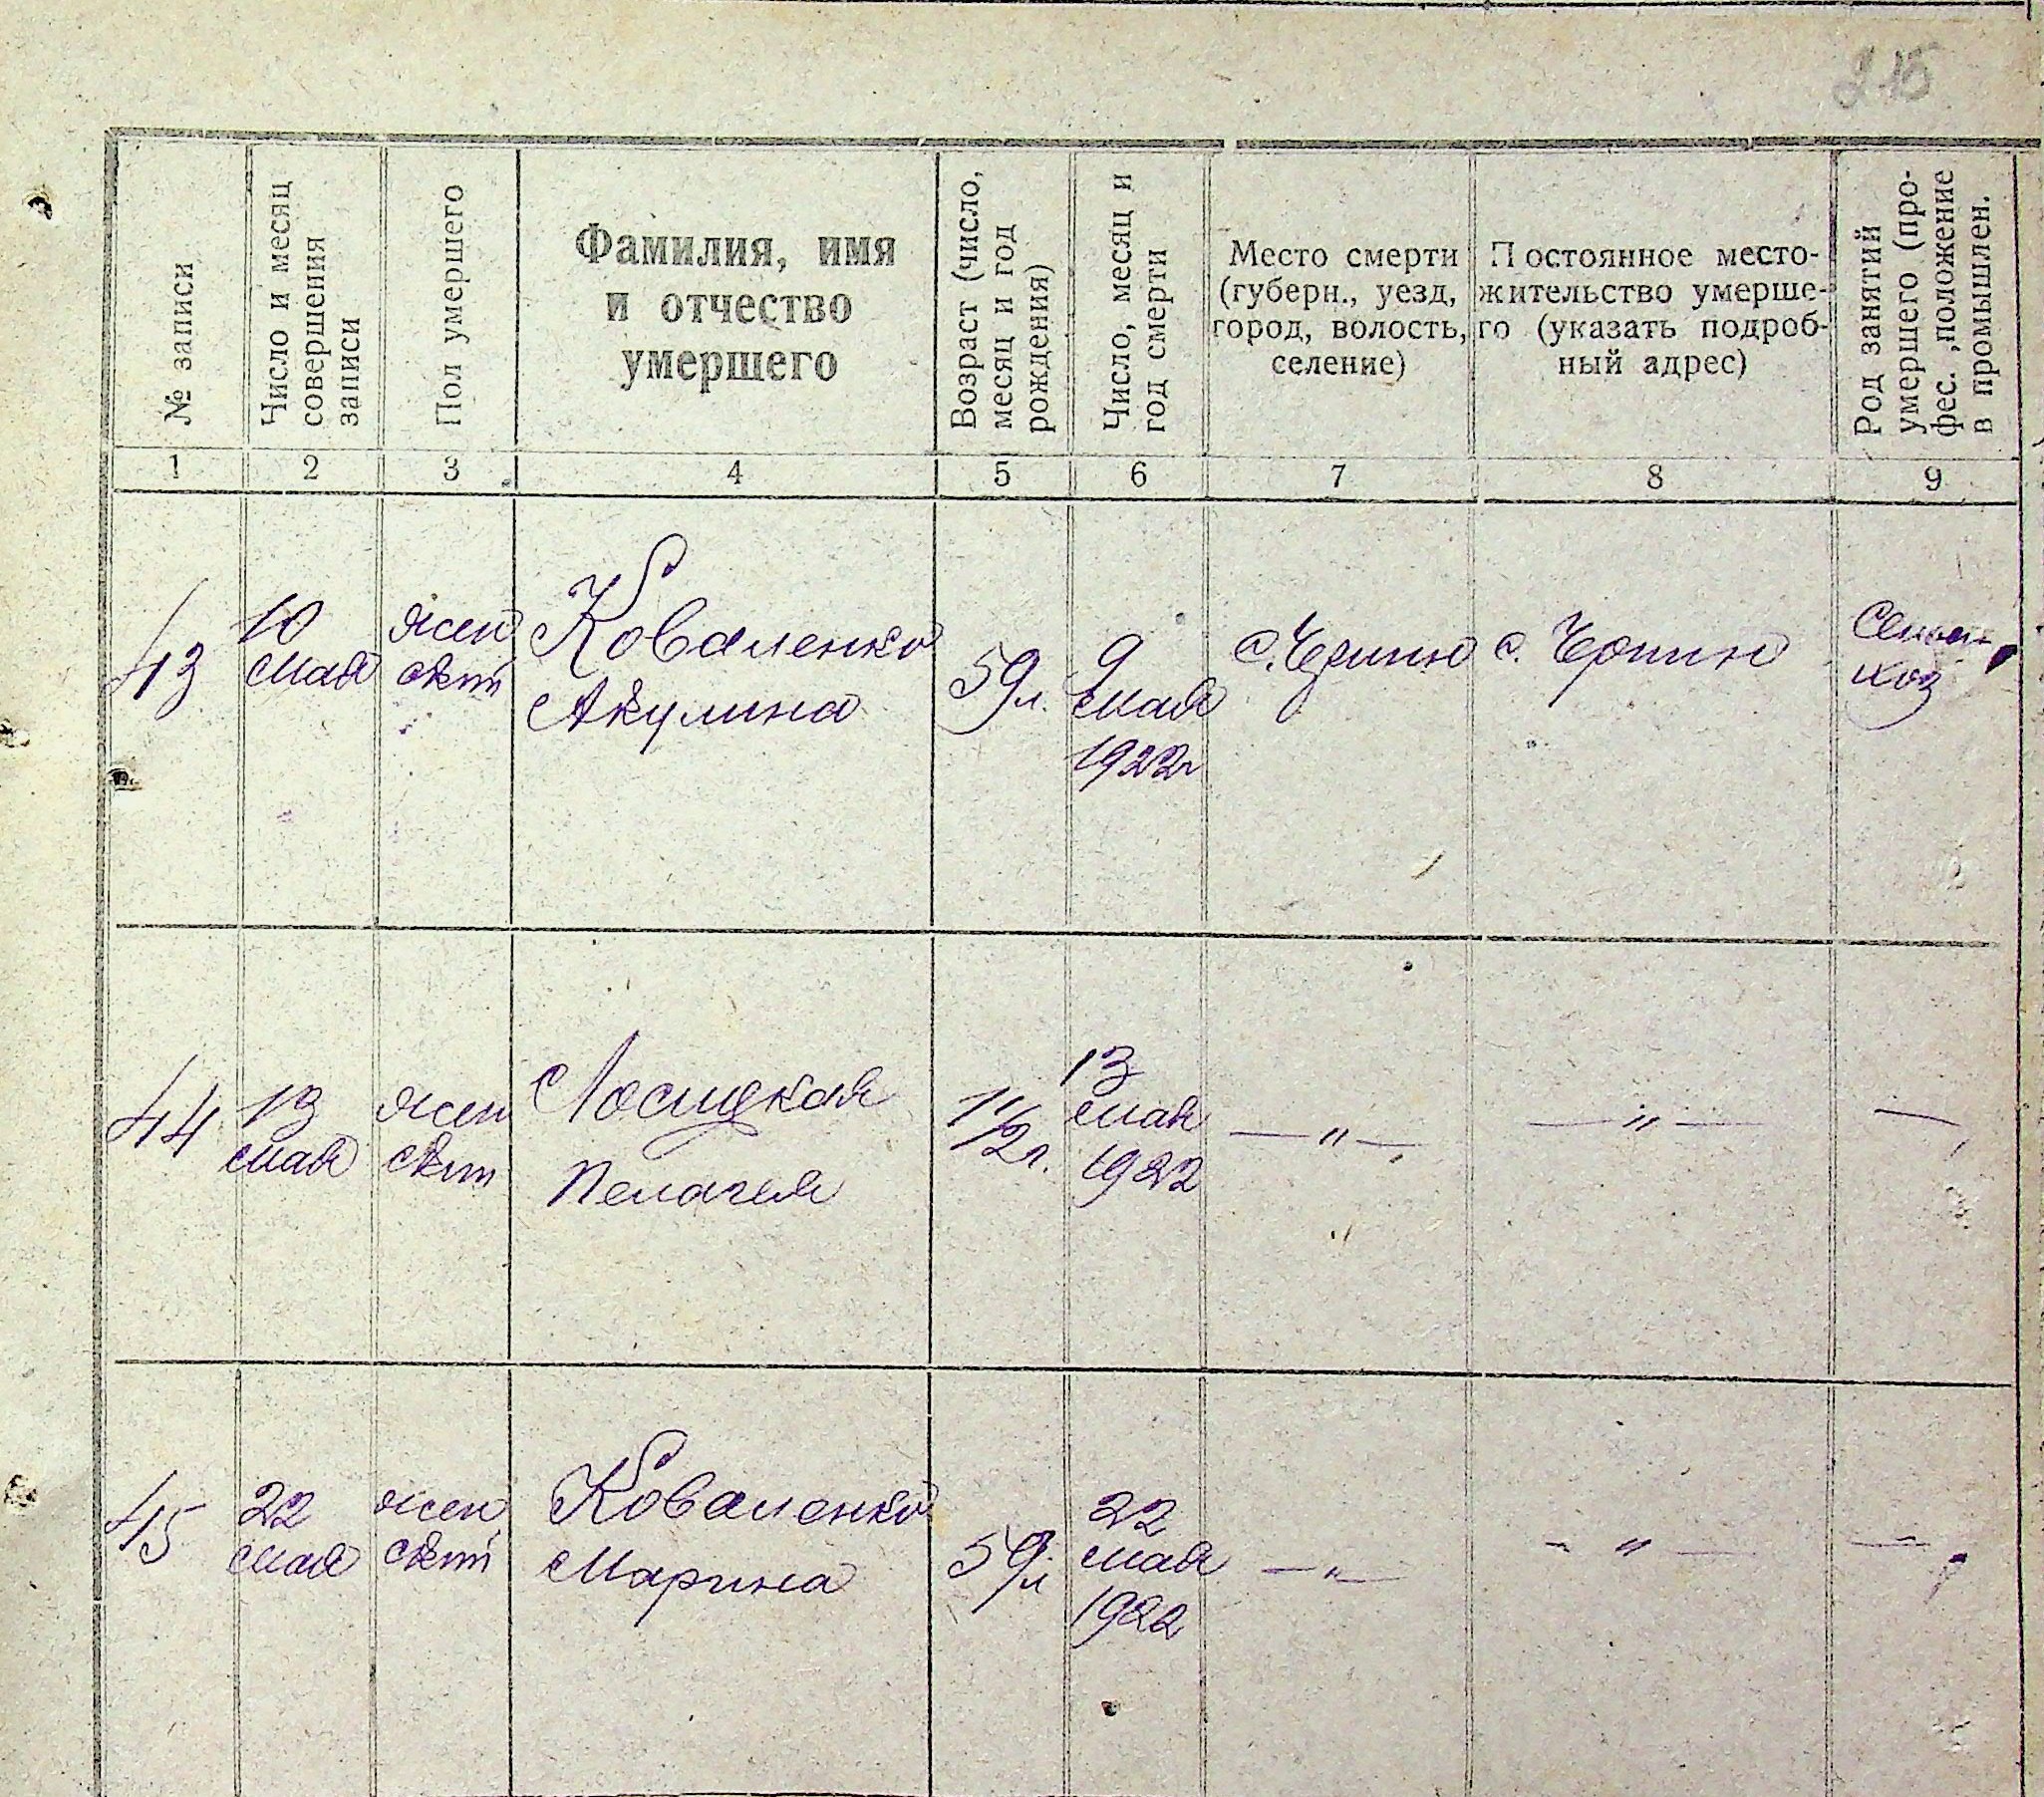 215
№ записи
Число и месяц
совершения
записи
Пол умершего
Фамилия, имя
и отчество
умершего
Возраст (число,
месяц и год
рождения)
Число, месяц и
год смерти
Место смерти
(губерн., уезд,
город, волость,
селение)
Постоянное место-
жительство умерше-
го (указать подроб-
ный адрес)
Род занятий
умершего (про-
фес. ,положение
в промышлен.
1 2 3 4 5 6 7 8 9
43
10
мая
жен
ский
Коваленко
Акулина
59 л.
9
мая
1922 г
с.
с.
хоз
44
13
мая
жен
ский
Лосицкая
Пелагея
1 1/2 г.
13
мая
1922
— " —
— " —
—
45
22
мая
жен
ский
Коваленко
Марина
59 л
22
мая
1922
— " —
- " —
—